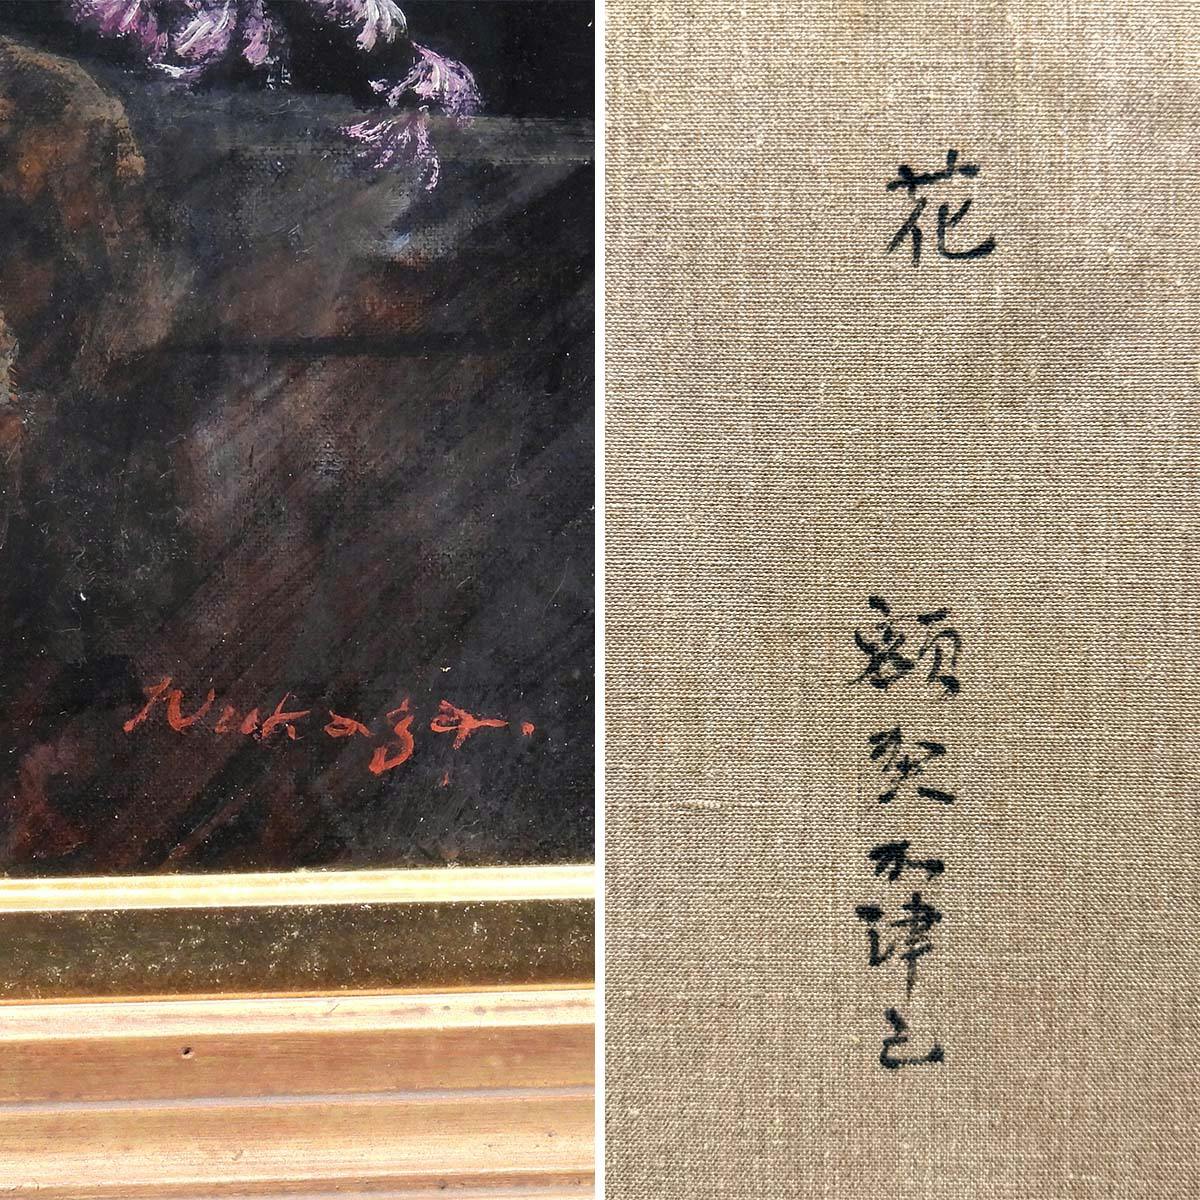 Nukaga.
花
額賀加津己